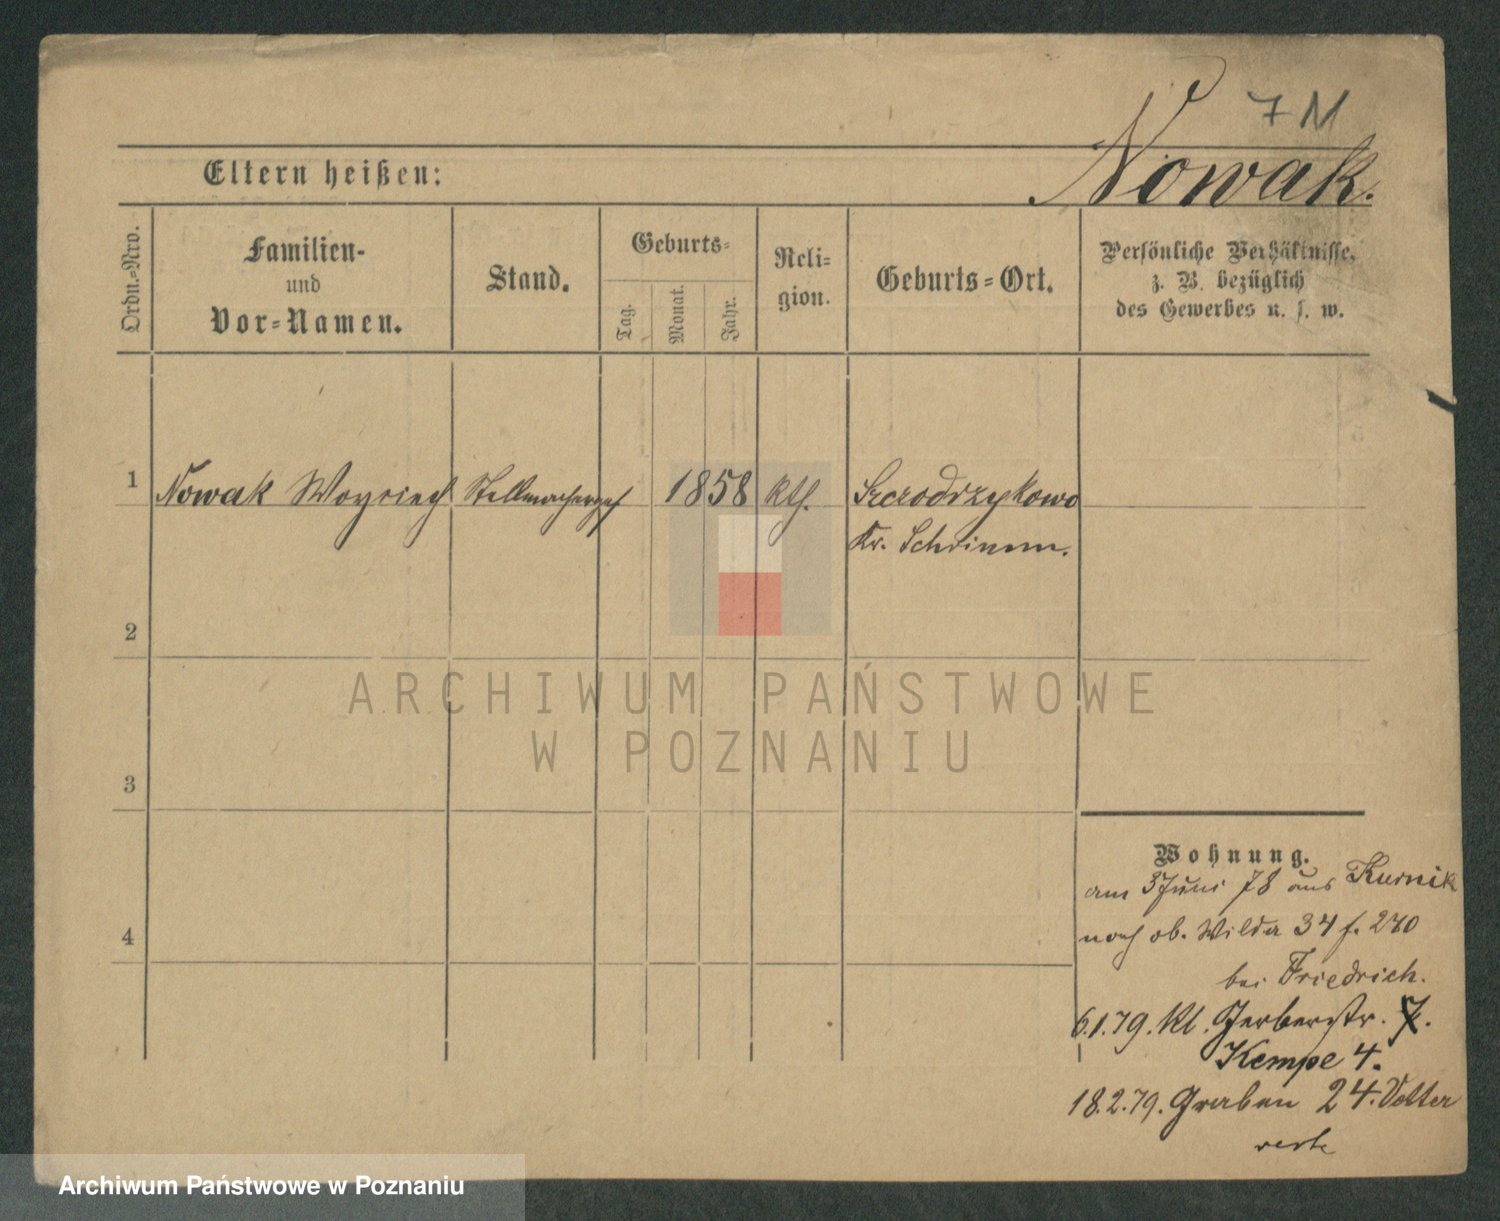 7 M
Nowak.
Eltern heißen:
Ordn.-Nro.
Familien-
und
Vor-Namen.
Stand.
Geburts-
Tag.
Monat.
Jahr.
Reli-
gion.
Geburts-Ort.
Persönliche Verhältnisse,
z. B. bezüglich
des Gewerbes u. s. w.
1 Nowak Woyciech Stellmacherges 1858 kth. Szczodrzykowo
Kr. Schrimm.
2
3
4
ARCHIWUM PAŃSTWOWE
W POZNANIU
Wohnung.
am 3 Juni 78 aus Kurnik
nach ob. Wilda 34 f. 270
bei Friedrich.
6.1.79. Kl. Gerberstr. 7.
Kempe 4.
18.2.79. Graben 24.
Archiwum Państwowe w Poznaniu